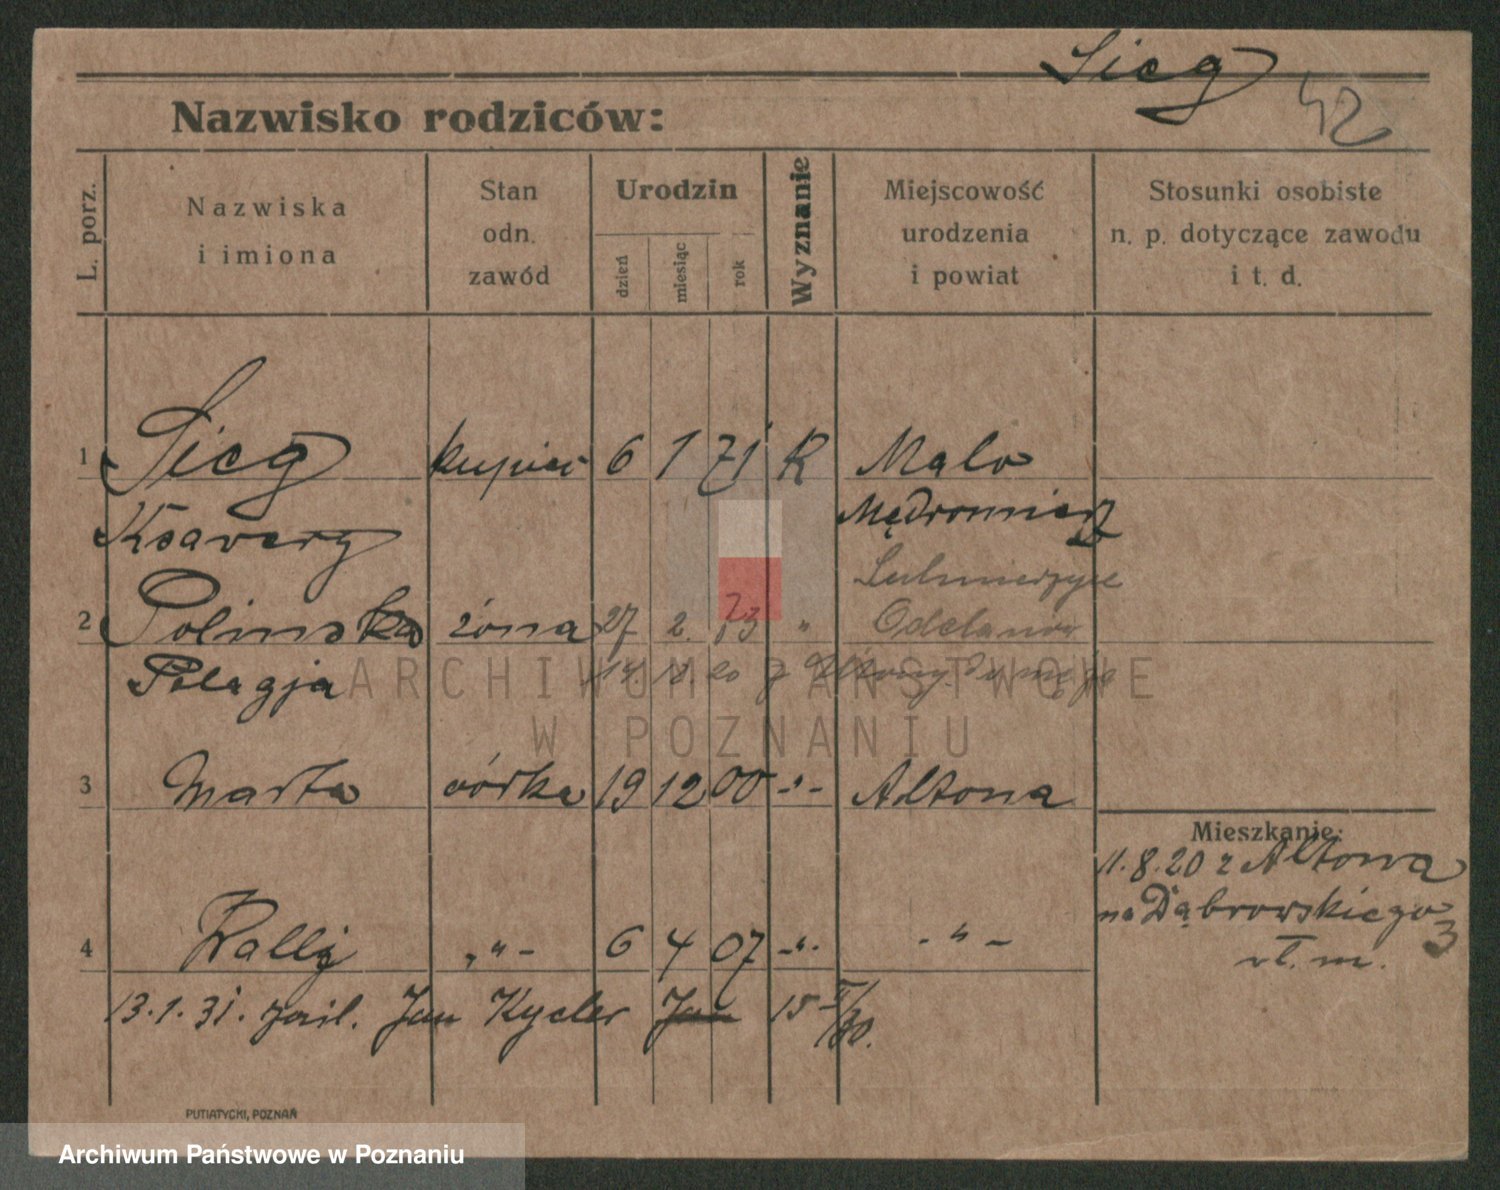 Sieg
42
Nazwisko rodziców:
L. porz.
Nazwiska
i imiona
Stan
odn.
zawód
Urodzin
dzień
miesiąc
rok
Wyznanie
Miejscowość
urodzenia
i powiat
Stosunki osobiste
n. p. dotyczące zawodu
i t. d.
1 Sieg kupiec 6 1 71 R Malo
Ksawery
2 Polinska żona 27 2. 73 " Odelanow
Pelagja
3 Marta córka 19 12 00 -"- Altona
Mieszkanie:
11.8.20 z Altona
na Dąbrowskiego
3
wł. m.
4 Wally -"- 6 4 07 -"- -"-
13.1.31. Jan Kycler Jan 15
PUTIATYCKI, POZNAŃ
ARCHIWUM PAŃSTWOWE
W POZNANIU
Archiwum Państwowe w Poznaniu